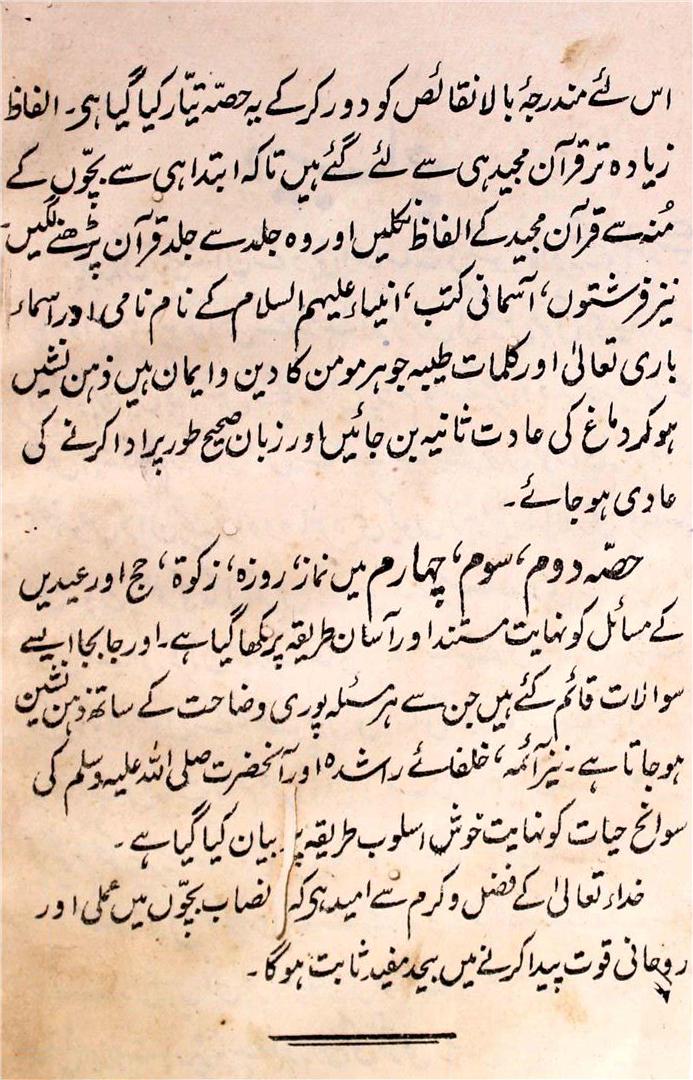 اس لئے مندرجۂ بالا نقائص کو دور کر کے یہ حصّہ تیّار کیا گیا ہی۔ الفاظ
زیادہ تر قرآن مجید ہی سے لئے گئے ہیں تاکہ ابتدا ہی سے بچّوں کے
مُنہ سے قرآن مجید کے الفاظ نکلیں اور وہ جلد سے جلد قرآن پڑھنے لگیں۔
نیز فرشتوں، آسمانی کتب، انبیاء علیہم السلام کے نام نامی اور اسماء
باری تعالیٰ اور کلمات طیبہ جو ہر مومن کا دین و ایمان ہیں ذہن نشیں
ہو کر دماغ کی عادت ثانیہ بن جائیں اور زبان صحیح طور پر ادا کرنے کی
عادی ہو جائے۔
حصّہ دوم، سوم، چہارم میں نماز، روزہ، زکوٰۃ، حج اور عیدیں
کے مسائل کو نہایت مستند اور آسان طریقہ پر لکھا گیا ہے۔ اور جا بجا ایسے
سوالات قائم کئے ہیں جن سے ہر مسئلہ پوری وضاحت کے ساتھ ذہن نشین
ہو جاتا ہے۔ نیز آئمہ، خلفائے راشدہ اور آنحضرت صلی اللہ علیہ وسلم کی
سوانح حیات کو نہایت خوش اسلوب طریقہ پر بیان کیا گیا ہے۔
خداء تعالیٰ کے فضل و کرم سے امید ہی کہ نصاب بچّوں میں عملی اور
روحانی قوت پیدا کرنے میں بیحد مفید ثابت ہوگا۔